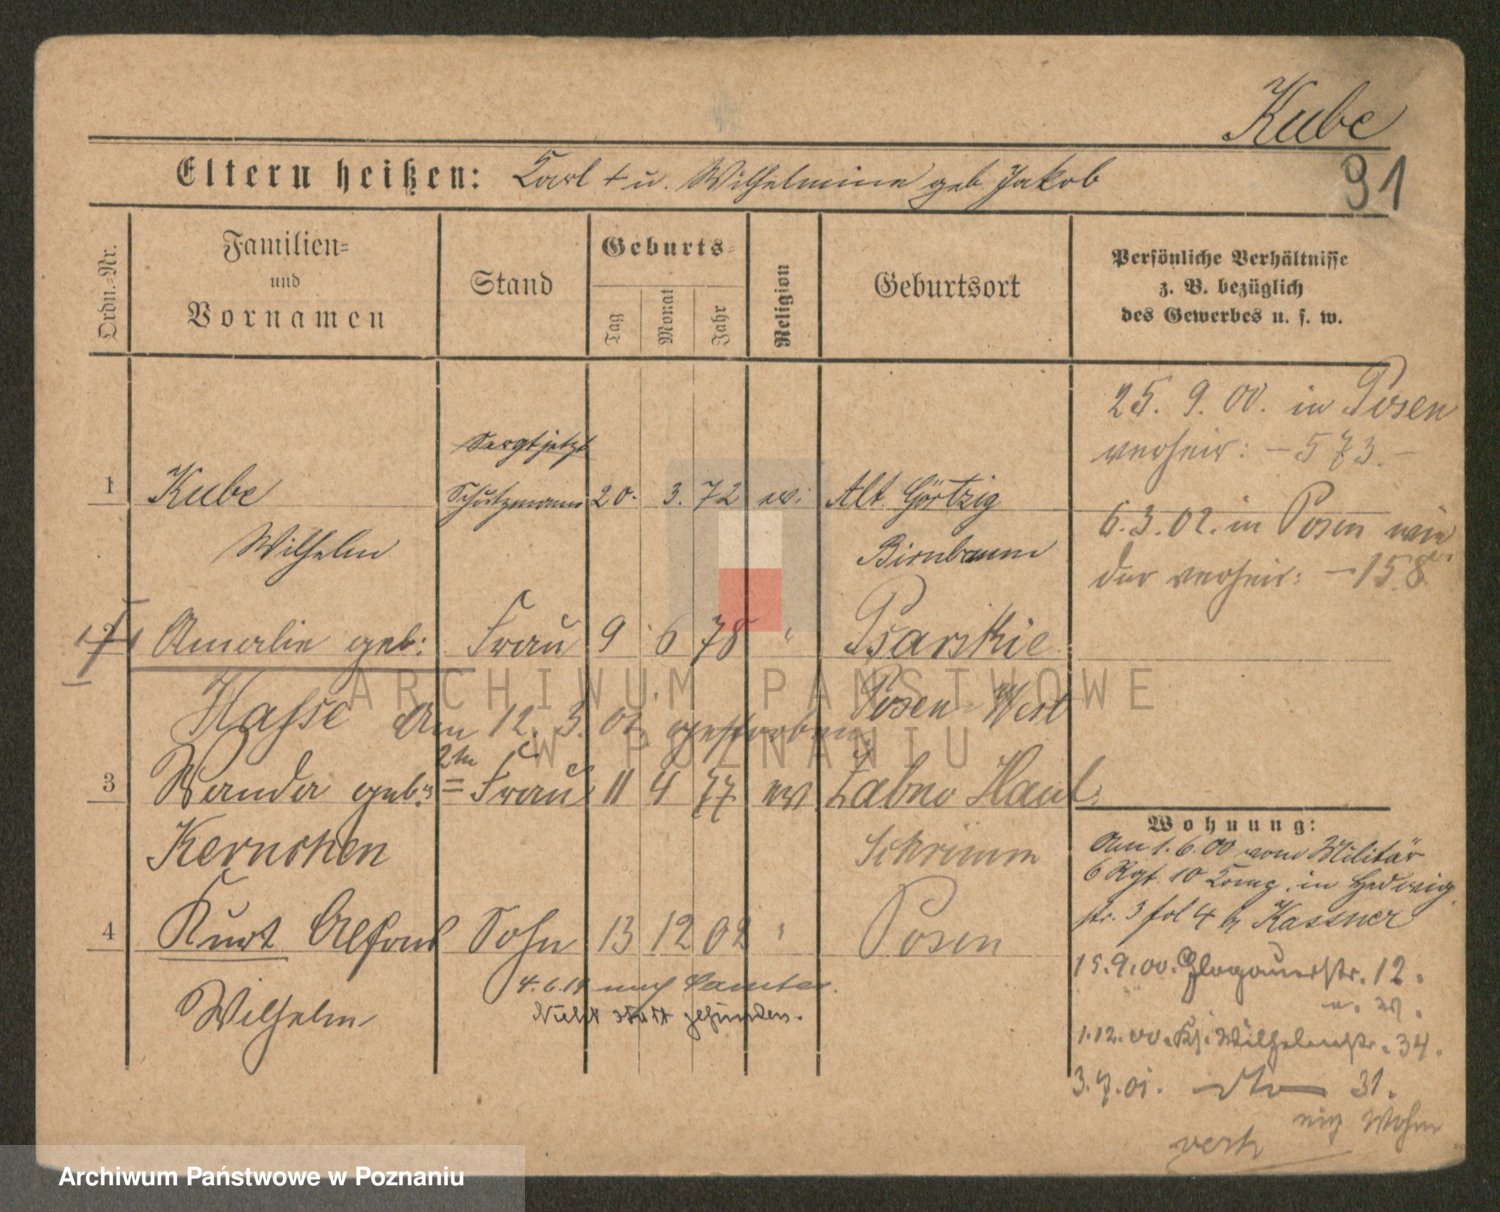 Kube
91
Eltern heißen: Carl † u. Wilhelmine geb. Jakob
Ordn.-Nr.
Familien-
und
Vornamen
Stand
Geburts-
Tag
Monat
Jahr
Religion
Geburtsort
Persönliche Verhältnisse
z. B. bezüglich
des Gewerbes u. s. w.
25. 9. 00. in Posen
verheir: - 573. -
Sergt jetzt
1 Kube Schutzmann 20. 3. 72 ev: Alt. Görtzig
Wilhelm Birnbaum
6. 3. 02. in Posen wie
der verheir: - 158
2 Amalie geb: Frau 9 6 78 " Psarskie
Hasse am 12. 3. 01. gestorben. Posen West
3 Wanda geb. 2te Frau 11 4 77 ev. Zabno Haul.
Kernchen Schrimm
4 Kurt Alfons Sohn 13 12 02 " Posen
Wilhelm
4. 6. 19 nach Samter.
Nicht statt gefunden.
Wohnung:
Am 1. 6. 00 vom Militär
6 Rgt. 10 Comp. in Hedwig
str. 3 fol 4 b/ Kassner
15. 9. 00. Glogauerstr. 12.
1. 12. 00. Kl. Wilhelmstr. 34.
3. 7. 01. dto 31.
eig Wohn
verh
ARCHIWUM PAŃSTWOWE
W POZNANIU
Archiwum Państwowe w Poznaniu